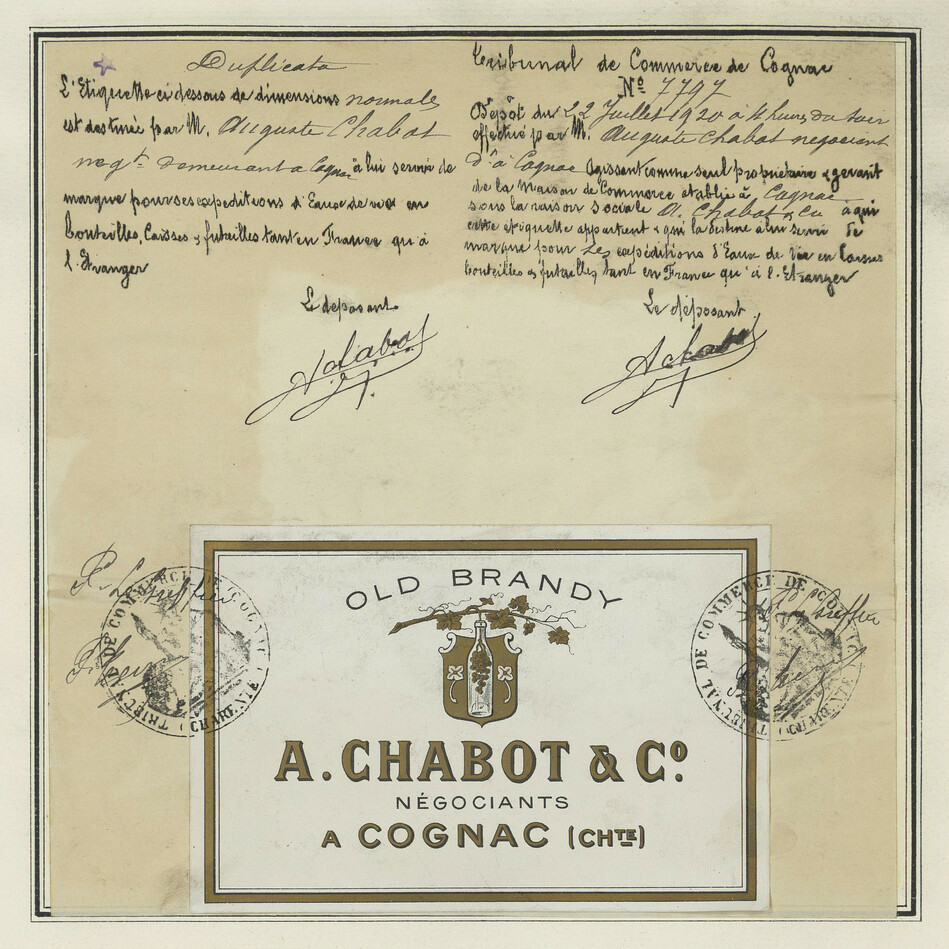 Duplicata
L'Etiquette ci dessous de dimensions normales
est destinée par M. Auguste Chabot
negt. demeurant a Cognac à lui servir de
marque pour ses expeditions d'Eaux de vie en
bouteilles, Caisses & futailles tant en France qu'à
l'Etranger
Le deposant
AChabot
Tribunal de Commerce de Cognac
No 7797
Dépôt du 22 Juillet 1920 à 4 heures du soir
effectué par M. Auguste Chabot negociant
d'à Cognac Agissant comme seul propriétaire & gerant
de la Maison de Commerce etablie à Cognac
sous la raison sociale A. Chabot & Cie à qui
cette etiquette appartient & qui la destine à lui servir de
marque pour ses expéditions d'Eaux de Vie en Caisses
bouteilles & futailles tant en France qu'à l'Etranger
Le déposant
AChabot
P. Le Greffier
TRIBUNAL DE COMMERCE DE COGNAC
(CHARENTE)
OLD BRANDY
A. CHABOT & Co
NÉGOCIANTS
A COGNAC (CHTE)
TRIBUNAL DE COMMERCE DE COGNAC
(CHARENTE)
P. Le Greffier